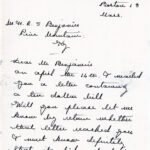 Boston 13
Mass.
Mr. W. E. S. Benjamin
Pine Mountain
Ky
Dear Mr Benjamin
on April the 16 th. I mailed
you a letter containing
a ten dollar bill
Will you please let me
know by return whether
that letter reached you
I must know definitely